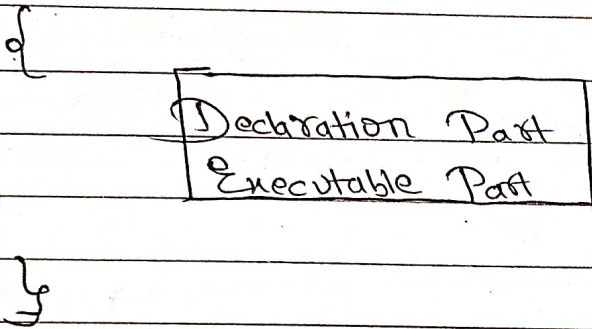 {
Declaration Part
Executable Part
}